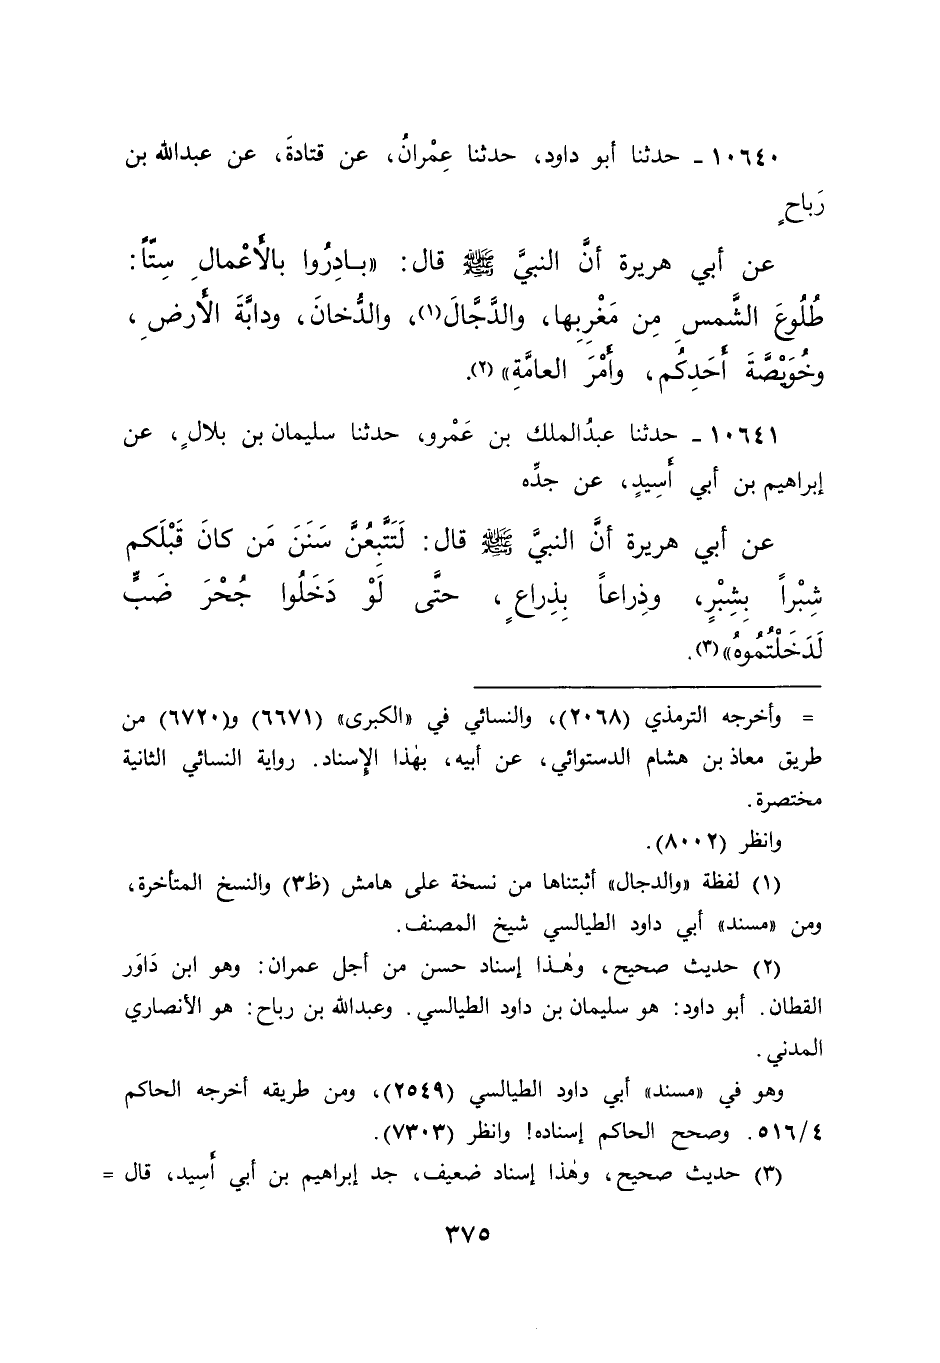 ١٠٦٤٠ ـ حدثنا أبو داود، حدثنا عِمْرانُ، عن قتادةَ، عن عبدالله بن
رَباحٍ
عن أبي هريرة أنَّ النبيَّ ﷺ قال: «بـادِرُوا بالأَعْمالِ سِتّاً:
طُلُوعَ الشَّمسِ مِن مَغْرِبِها، والدَّجَّالَ(١)، والدُّخانَ، ودابَّةَ الأَرضِ،
وخُوَيْصَّةَ أَحَدِكُم، وأَمْرَ العامَّةِ» (٢).
١٠٦٤١ ـ حدثنا عبدُالملك بن عَمْرو، حدثنا سليمان بن بلالٍ، عن
إبراهيم بن أبي أَسِيدٍ، عن جدِّه
عن أبي هريرة أنَّ النبيَّ ﷺ قال: لَتَتَّبِعُنَّ سَنَنَ مَن كانَ قَبْلَكم
شِبْراً بِشِبْرٍ، وذِراعاً بِذِراعٍ، حتَّى لَوْ دَخَلُوا جُحْرَ ضَبٍّ
لَدَخَلْتُمُوهُ» (٣).
= وأخرجه الترمذي (٢٠٦٨)، والنسائي في «الكبرى» (٦٦٧١) و(٦٧٢٠) من
طريق معاذ بن هشام الدستوائي، عن أبيه، بهٰذا الإسناد. رواية النسائي الثانية
مختصرة.
وانظر (٨٠٠٢).
(١) لفظة «والدجال» أثبتناها من نسخة على هامش (ظ٣) والنسخ المتأخرة،
ومن «مسند» أبي داود الطيالسي شيخ المصنف.
(٢) حديث صحيح، وهٰـذا إسناد حسن من أجل عمران: وهو ابن دَاوَر
القطان. أبو داود: هو سليمان بن داود الطيالسي. وعبدالله بن رباح: هو الأنصاري
المدني.
وهو في «مسند» أبي داود الطيالسي (٢٥٤٩)، ومن طريقه أخرجه الحاكم
٥١٦/٤. وصحح الحاكم إسناده! وانظر (٧٣٠٣).
(٣) حديث صحيح، وهٰذا إسناد ضعيف، جد إبراهيم بن أبي أَسِيد، قال =
٣٧٥